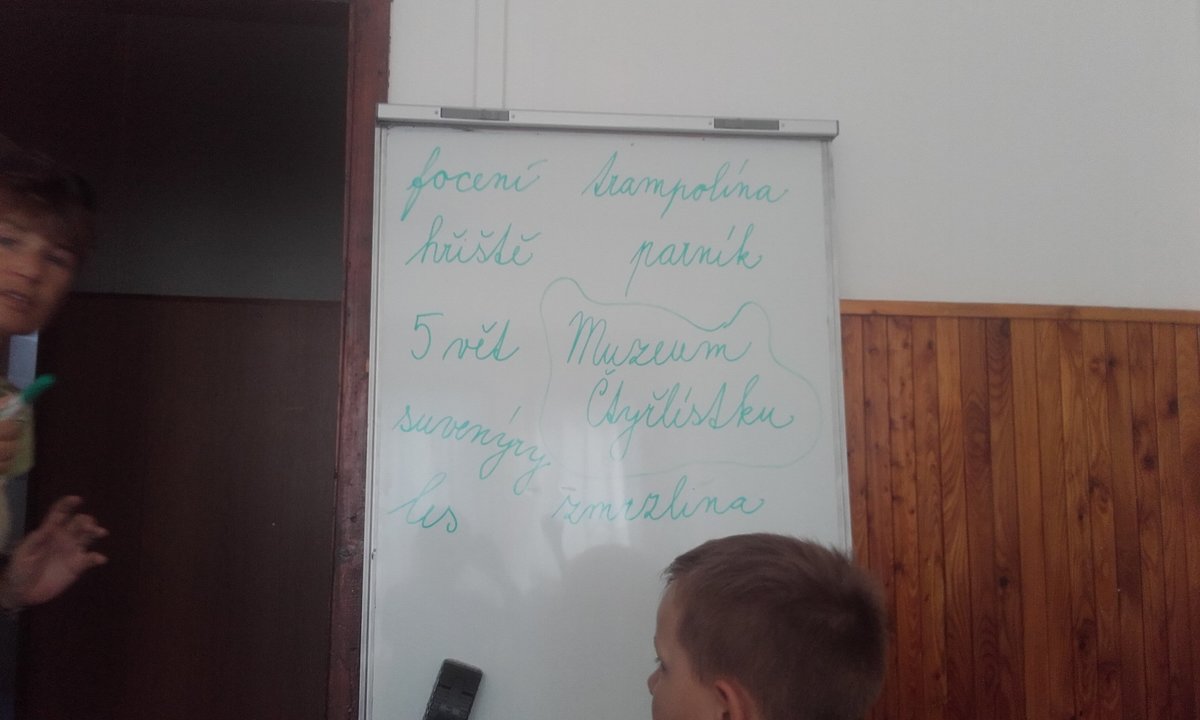 focení trampolína
hřiště parník
5 vět Muzeum
Čtyřlístku
suvenýry
les zmrzlina